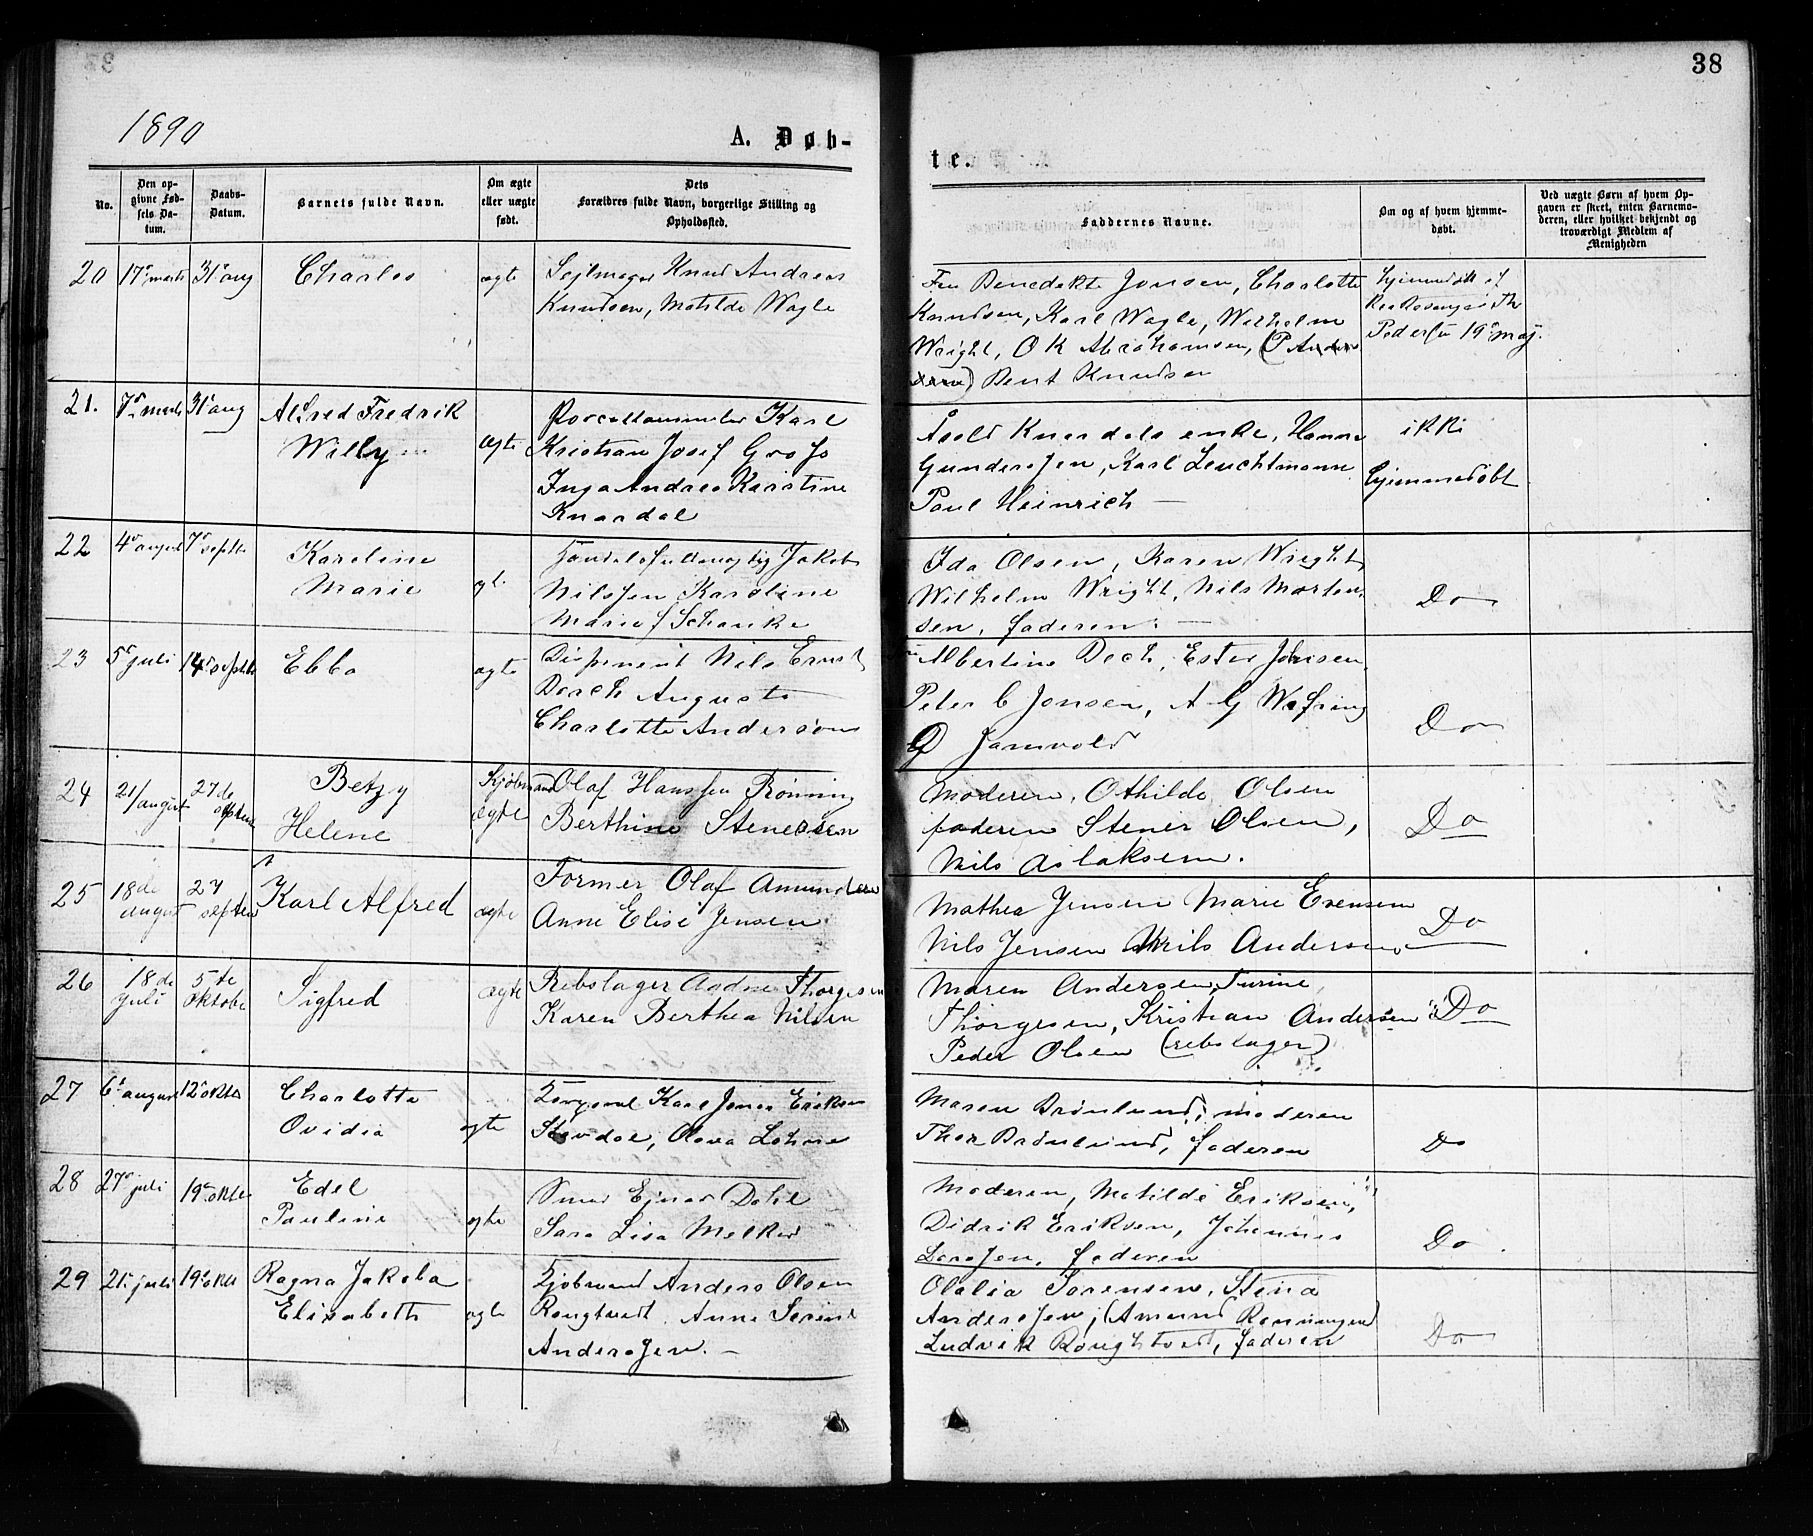 38
1890
A. Døb-
te.
No.
Den op-
givne Fød-
sels Da-
tum.
Daabs-
Datum.
Barnets fulde Navn.
Om ægte
eller uægte
født.
Dets
Forældres fulde Navn, borgerlige Stilling og
Opholdssted.
Faddernes Navne.
Om og af hvem hjemme-
døbt.
Ved uægte Børn af hvem Op-
gaven er skret, enten Barnemo-
deren, eller hvilket bekjendt og
troværdigt Medlem af
Menigheden
20 17de marts 31te aug Charles ægte Sejlmager Knud Andreas
Knudsen, Matilde Wagle
Fru Benedikte Jonsen, Charlotte
Knudsen, Karl Wagle, Wilhelm
Wright, O K Abrahamsen, (P Ander
Bent Knudsen
Hjemmedøbt af
Pedersen 19de maj.
21. 7de marts 31te aug Alfred Fredrik
Willy ægte Karl
Kristian Josef Grofs
Inga Andrea Karstine
Knardal
Knardals enke, Hanna
Gundersen, Karl Leuchtmann
Paul Heinrich —
ikke
hjemmedøbt
22 4de august 7de septbr Karoline
Marie ægt. Jakob
Nilssen Karoline
Marie f Schanke
Ida Olsen, Karen Wright,
Wilhelm Wright, Nils Morten-
sen, faderen. —
Do
23 5te juli 14de septbr Ebba ægte Disponent Nils Ernst
Dorch Augusta
Charlotte Anderson
Albertine Dech, Ester Jonsen
Peter C Jonsen, A G Wafring
Jamvold
Do
24 21/august 27de septem Betzy
Helene Kjøbmand
ægte Olaf Hanssen Rønning
Berthine Stenersen
Moderen, Othilde Olsen
faderen Stener Olsen,
Nils Aslaksen.
Do
25 18de august 27 septem Karl Alfred ægte Former Olaf Amundsen
Anne Elise Jensen
Mathea Jensen Marie Evensen
Nils Jensen Nils Andersen
Do
26 18de juli 5te oktobe Sigfred ægte Rebslager Andreas Thorgesen
Karen Berthea Nilsen
Maren Andersen, Turine,
Thorgesen, Kristian Andersen
Peder Olsen (rebslager)
Do
27 6te august 12te oktb Charlotte
Ovidia ægte Karl Jonas Eriksen
Stovdal, Olava Lohne
Maren Brønlund, moderen
Thor Brønlund, faderen
Do
28 27de juli 19de oktbr Edel
Pauline ægte Smed Ejnar Dahl
Sara Lisa Melker
Moderen, Matilde Eriksen,
Didrik Eriksen, Johannes
Larsen, faderen
Do.
29 21te juli 19de oktbr Ragna Jakoba
Elisabeth ægte Kjøbmand Anders Olsen
Rougtvedt. Anne Serine
Andersen. —
Olalia Sørensen, Stina
Andersen, (Amund Rønningen)
Ludvik Roughtvedt, faderen
Do